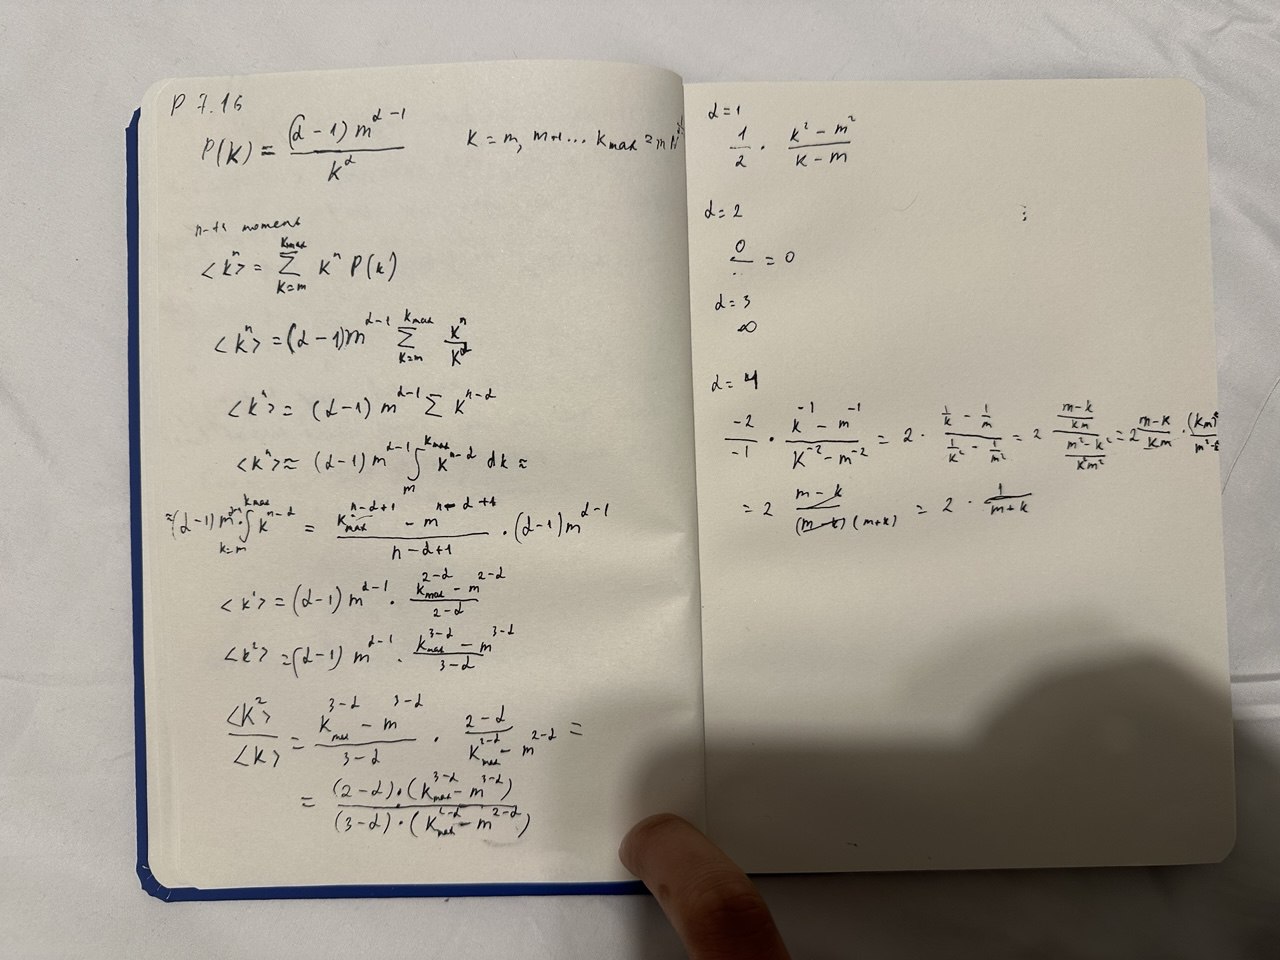 P 7.16
P(k) = (α-1) m^(α-1) / k^α    k = m, m+1 ... k_max = m N
n-th moment
<k^n> = Σ_(k=m)^(k_max) k^n P(k)
<k^n> = (α-1) m^(α-1) Σ_(k=m)^(k_max) k^n / k^α
<k^n> = (α-1) m^(α-1) Σ k^(n-α)
<k^n> ≈ (α-1) m^(α-1) ∫_m^(k_max) k^(n-α) dk ≈
≈ (α-1) m^(α-1) · ∫_(k=m)^(k_max) k^(n-α) = (k_max^(n-α+1) - m^(n-α+1)) / (n-α+1) · (α-1) m^(α-1)
<k^1> = (α-1) m^(α-1) · (k_max^(2-α) - m^(2-α)) / (2-α)
<k^2> = (α-1) m^(α-1) · (k_max^(3-α) - m^(3-α)) / (3-α)
<k^2> / <k> = (k_max^(3-α) - m^(3-α)) / (3-α) · (2-α) / (k_max^(2-α) - m^(2-α)) =
= (2-α)·(k_max^(3-α) - m^(3-α)) / (3-α)·(k_max^(2-α) - m^(2-α))
α=1
1/2 · (k^2 - m^2) / (k - m)
α=2
0/. = 0
α=3
∞
α=4
-2/-1 · (k^-1 - m^-1) / (k^-2 - m^-2) = 2 · (1/k - 1/m) / (1/k^2 - 1/m^2) = 2 ((m-k)/(km)) / ((m^2-k^2)/(k^2m^2)) = 2 (m-k)/(km) · (km)^2 / (m^2-
= 2 (m-k) / ((m-k)(m+k)) = 2 · 1/(m+k)